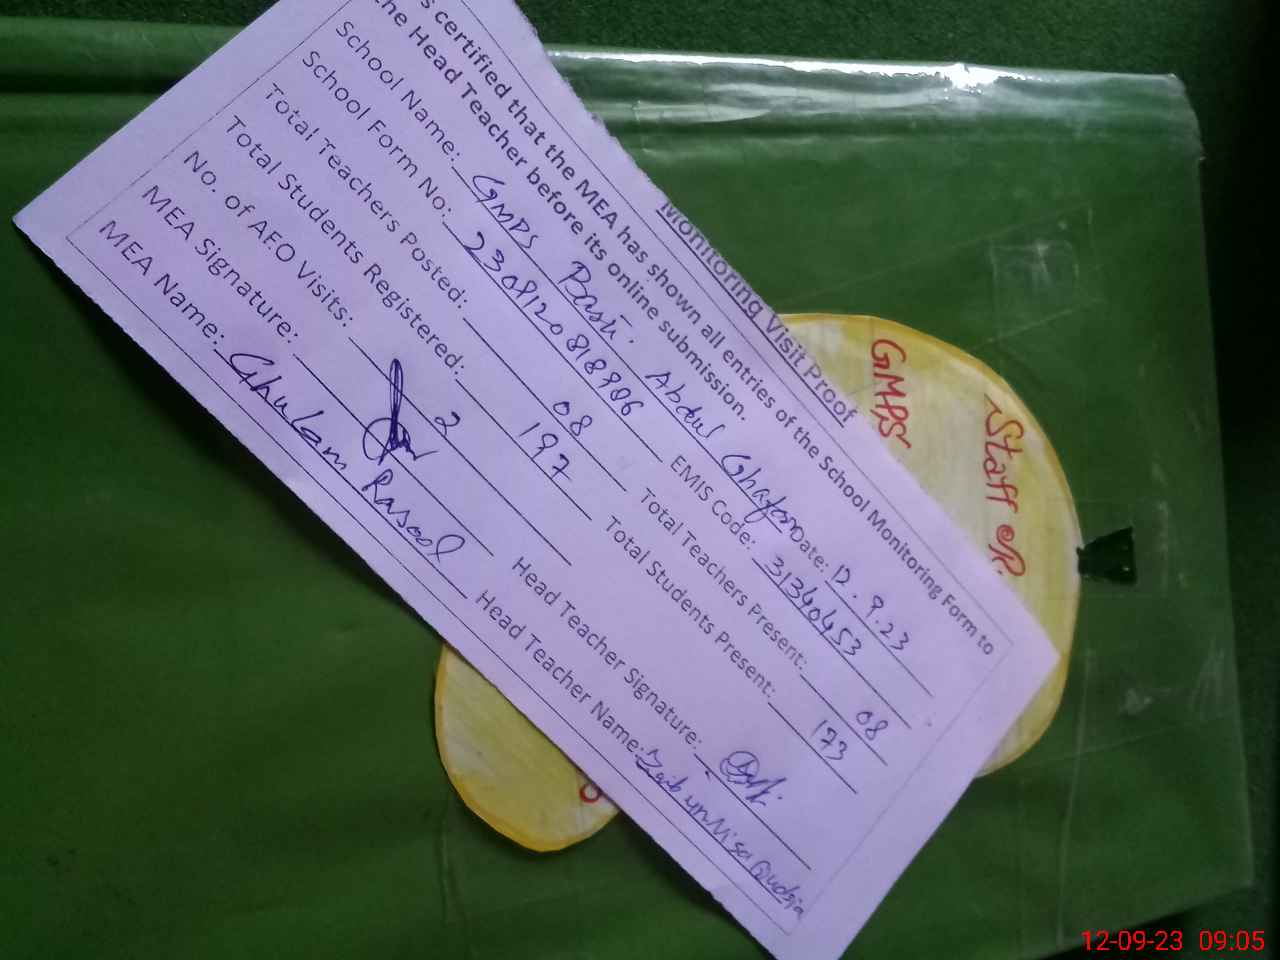 Monitoring Visit Proof
s certified that the MEA has shown all entries of the School Monitoring Form to
he Head Teacher before its online submission.
School Name: GMPS Basti Abdul Ghafoor Date: 12.9.23
School Form No: EMIS Code: 31340453
Total Teachers Posted: 08 Total Teachers Present: 08
Total Students Registered: 197 Total Students Present: 173
No. of AEO Visits: 2
MEA Signature: Head Teacher Signature:
MEA Name: Ghulam Rasool Head Teacher Name: Zaib un Nisa
Staff
GMPS
12-09-23 09:05